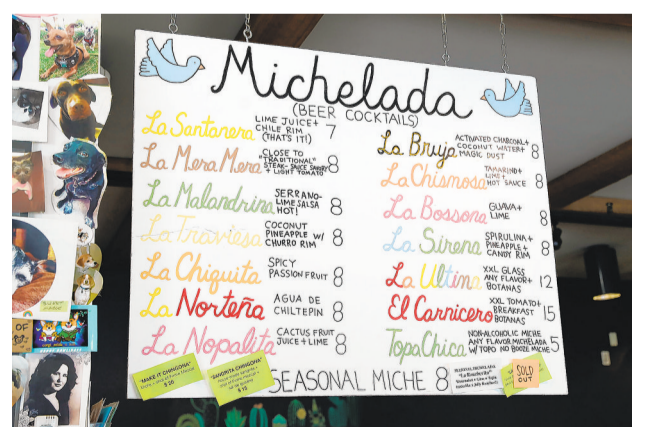 Michelada
(BEER COCKTAILS)
La Santanera LIME JUICE+ CHILE RIM (THAT'S IT!) 7
La Mera Mera CLOSE TO "TRADITIONAL" STEAK-SAUCE SAVORY + LIGHT TOMATO 8
La Malandrina SERRANO-LIME SALSA HOT! 8
La Traviesa COCONUT PINEAPPLE W/ CHURRO RIM 8
La Chiquita SPICY PASSION FRUIT 8
La Norteña AGUA DE CHILTEPIN 8
La Nopalita CACTUS FRUIT JUICE + LIME 8
La Bruja ACTIVATED CHARCOAL+ COCONUT WATER+ MAGIC DUST 8
La Chismosa TAMARIND+ LIME+ HOT SAUCE 8
La Bossona GUAVA+ LIME 8
La Sirena SPIRULINA+ PINEAPPLE+ CANDY RIM 8
La Ultina XXL GLASS ANY FLAVOR+ BOTANAS 12
El Carnicero XXL TOMATO+ BREAKFAST BOTANAS 15
TopaChica NON-ALCOHOLIC MICHE ANY FLAVOR MICHELADA W/ TOPO NO BOOZE MICHE 5
SEASONAL MICHE 8
"MAKE IT CHINGONA"
$20
"BANDRITA CHINGONA"
$15
SOLD
OUT
OF